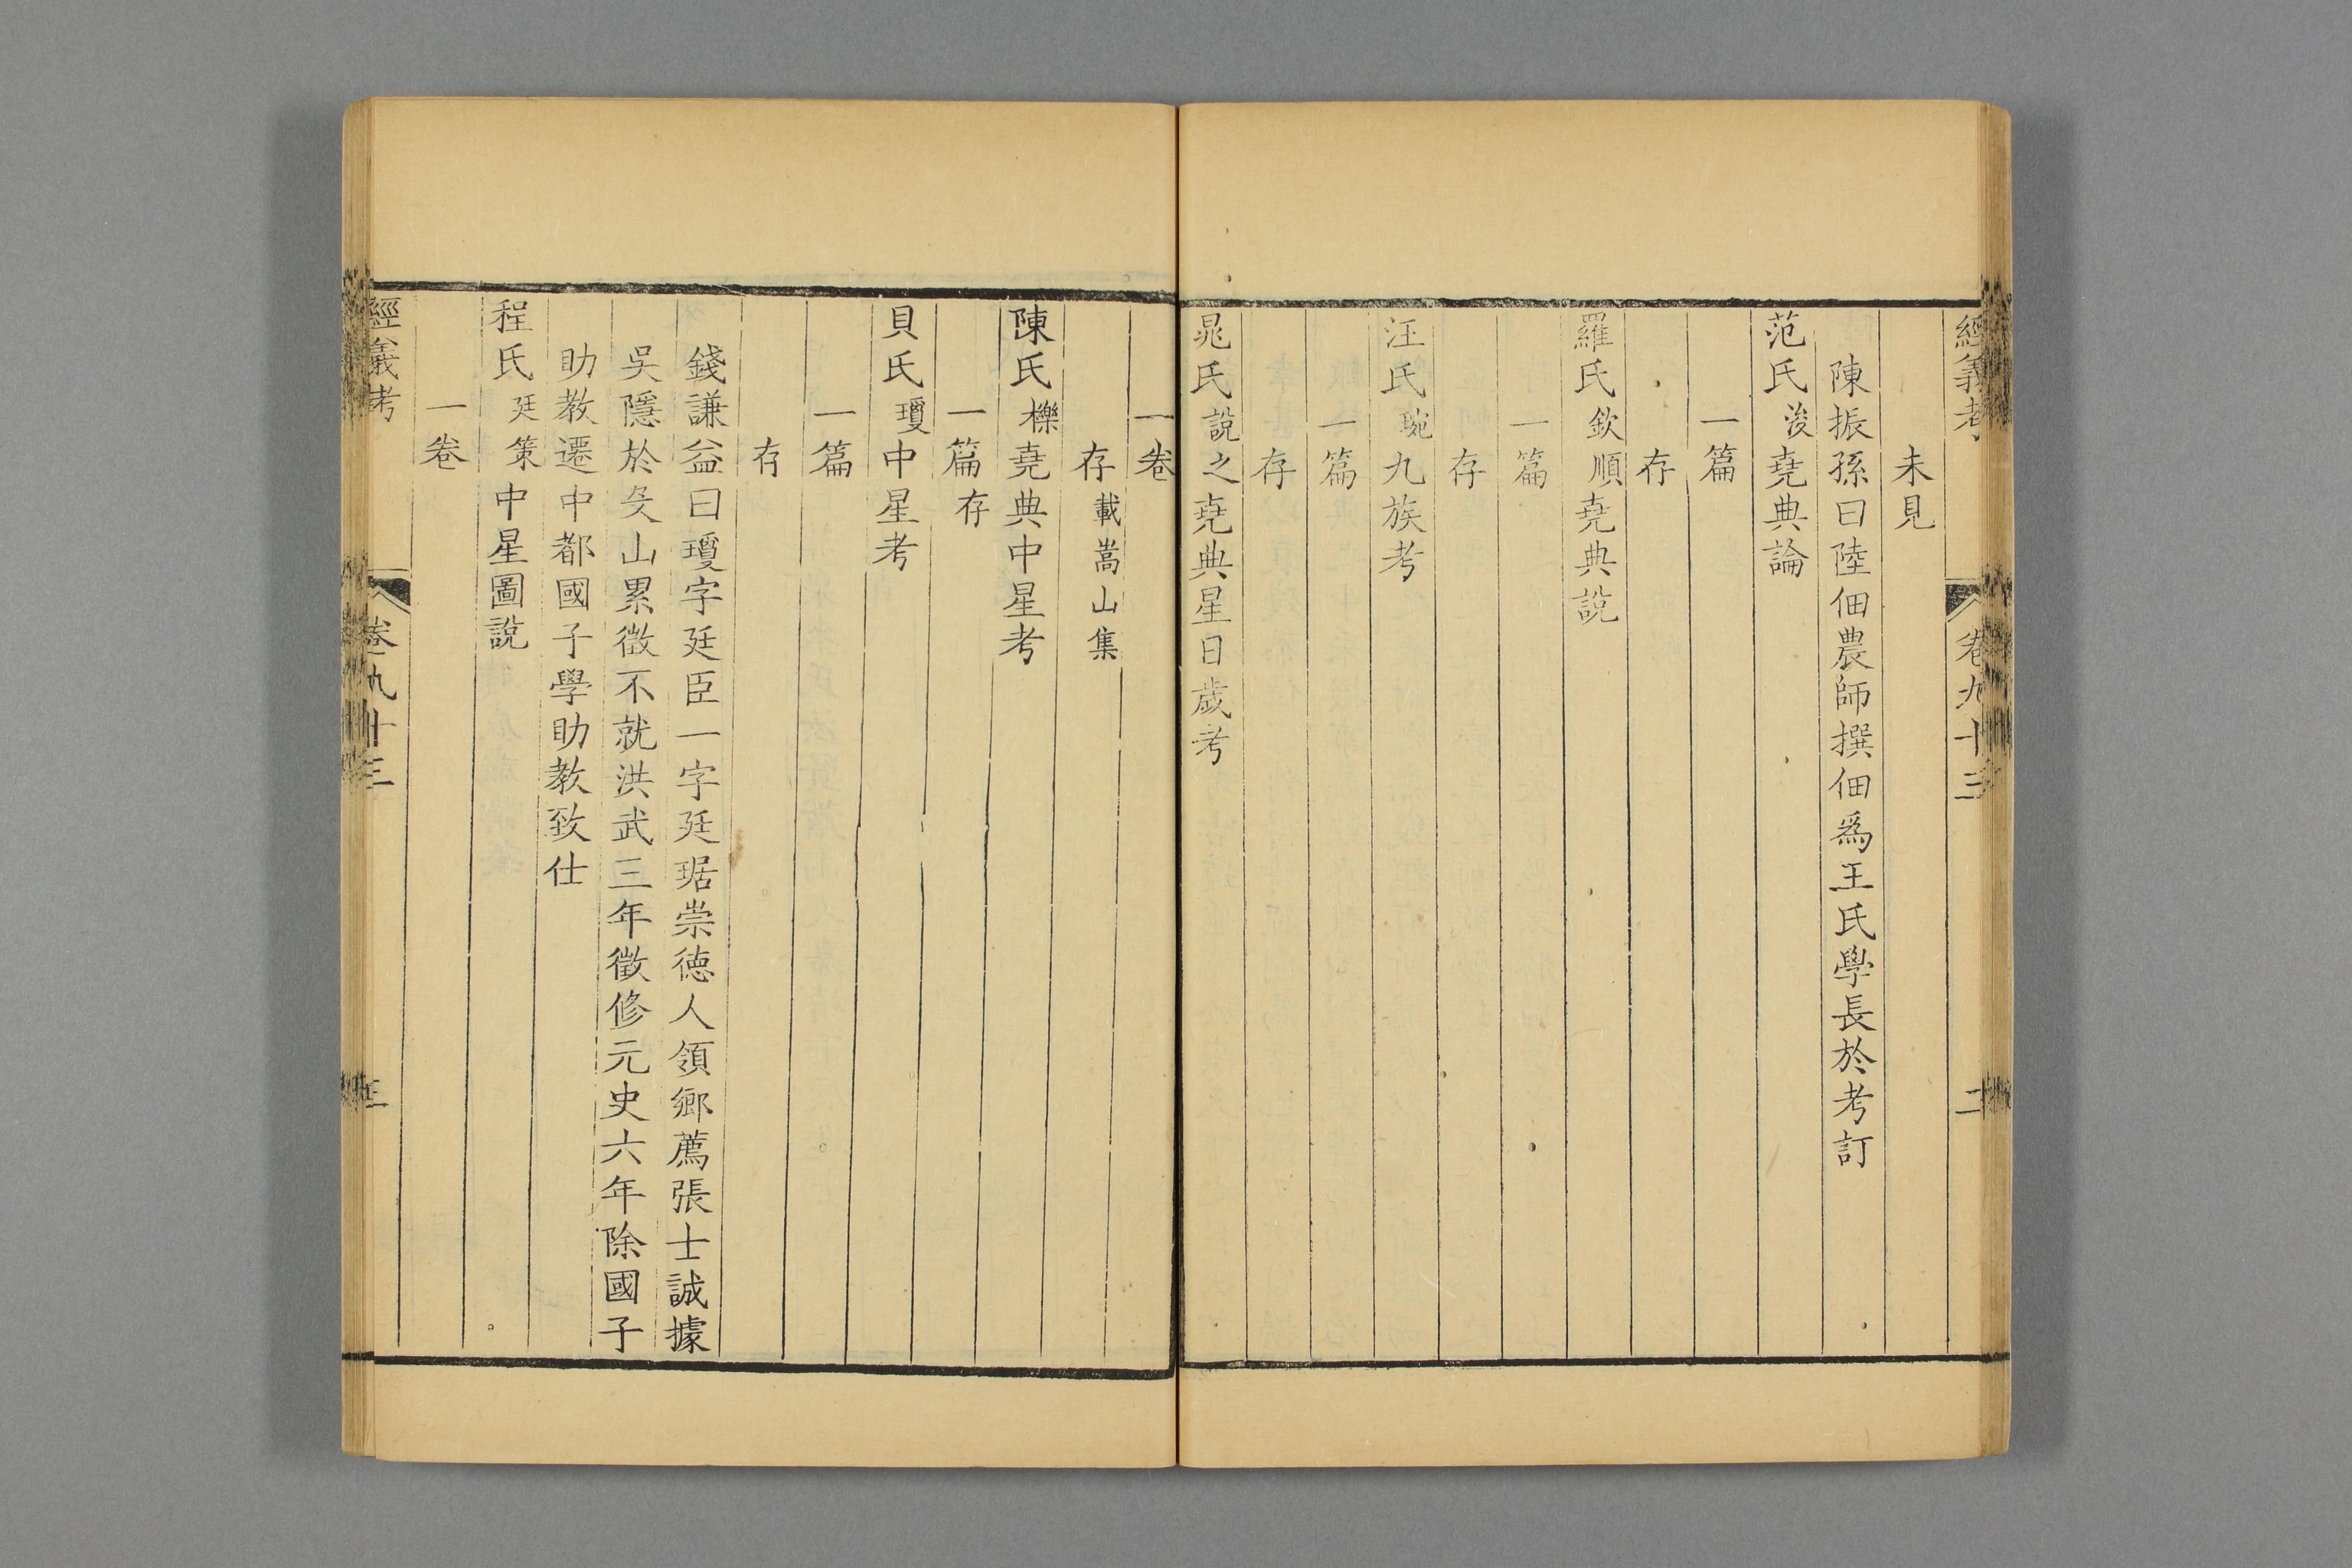 經義考 卷九十三 二
未見
陳振孫曰陸佃農師撰佃爲王氏學長於考訂
范氏浚堯典論
一篇
存
羅氏欽順堯典說
一篇
存
汪氏琬九族考
一篇
存
晁氏說之堯典星日歲考
一卷
存載嵩山集
陳氏櫟堯典中星考
一篇存
貝氏瓊中星考
一篇
存
錢謙益曰瓊字廷臣一字廷琚崇德人領鄉薦張士誠據
吳隱於殳山累徵不就洪武三年徵修元史六年除國子
助教遷中都國子學助教致仕
程氏廷策中星圖說
一卷
經義考 卷九十三 三